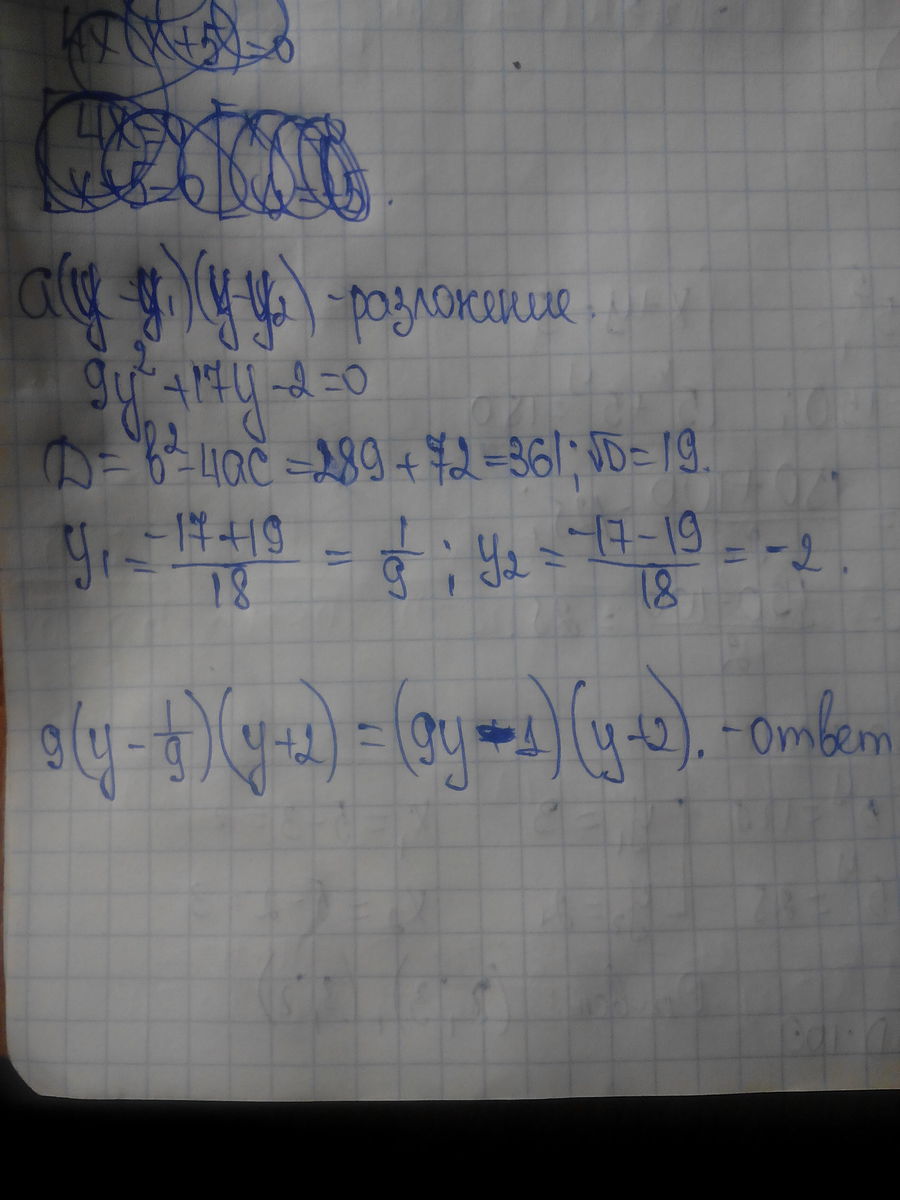 4x(x+5)=0
a(y-y₁)(y-y₂) - разложение.
9y²+17y-2=0
D=b²-4ac=289+72=361; √D=19.
y₁=\frac{-17+19}{18}=\frac{1}{9}; y₂=\frac{-17-19}{18}=-2.
9(y-\frac{1}{9})(y+2)=(9y-1)(y+2). - ответ